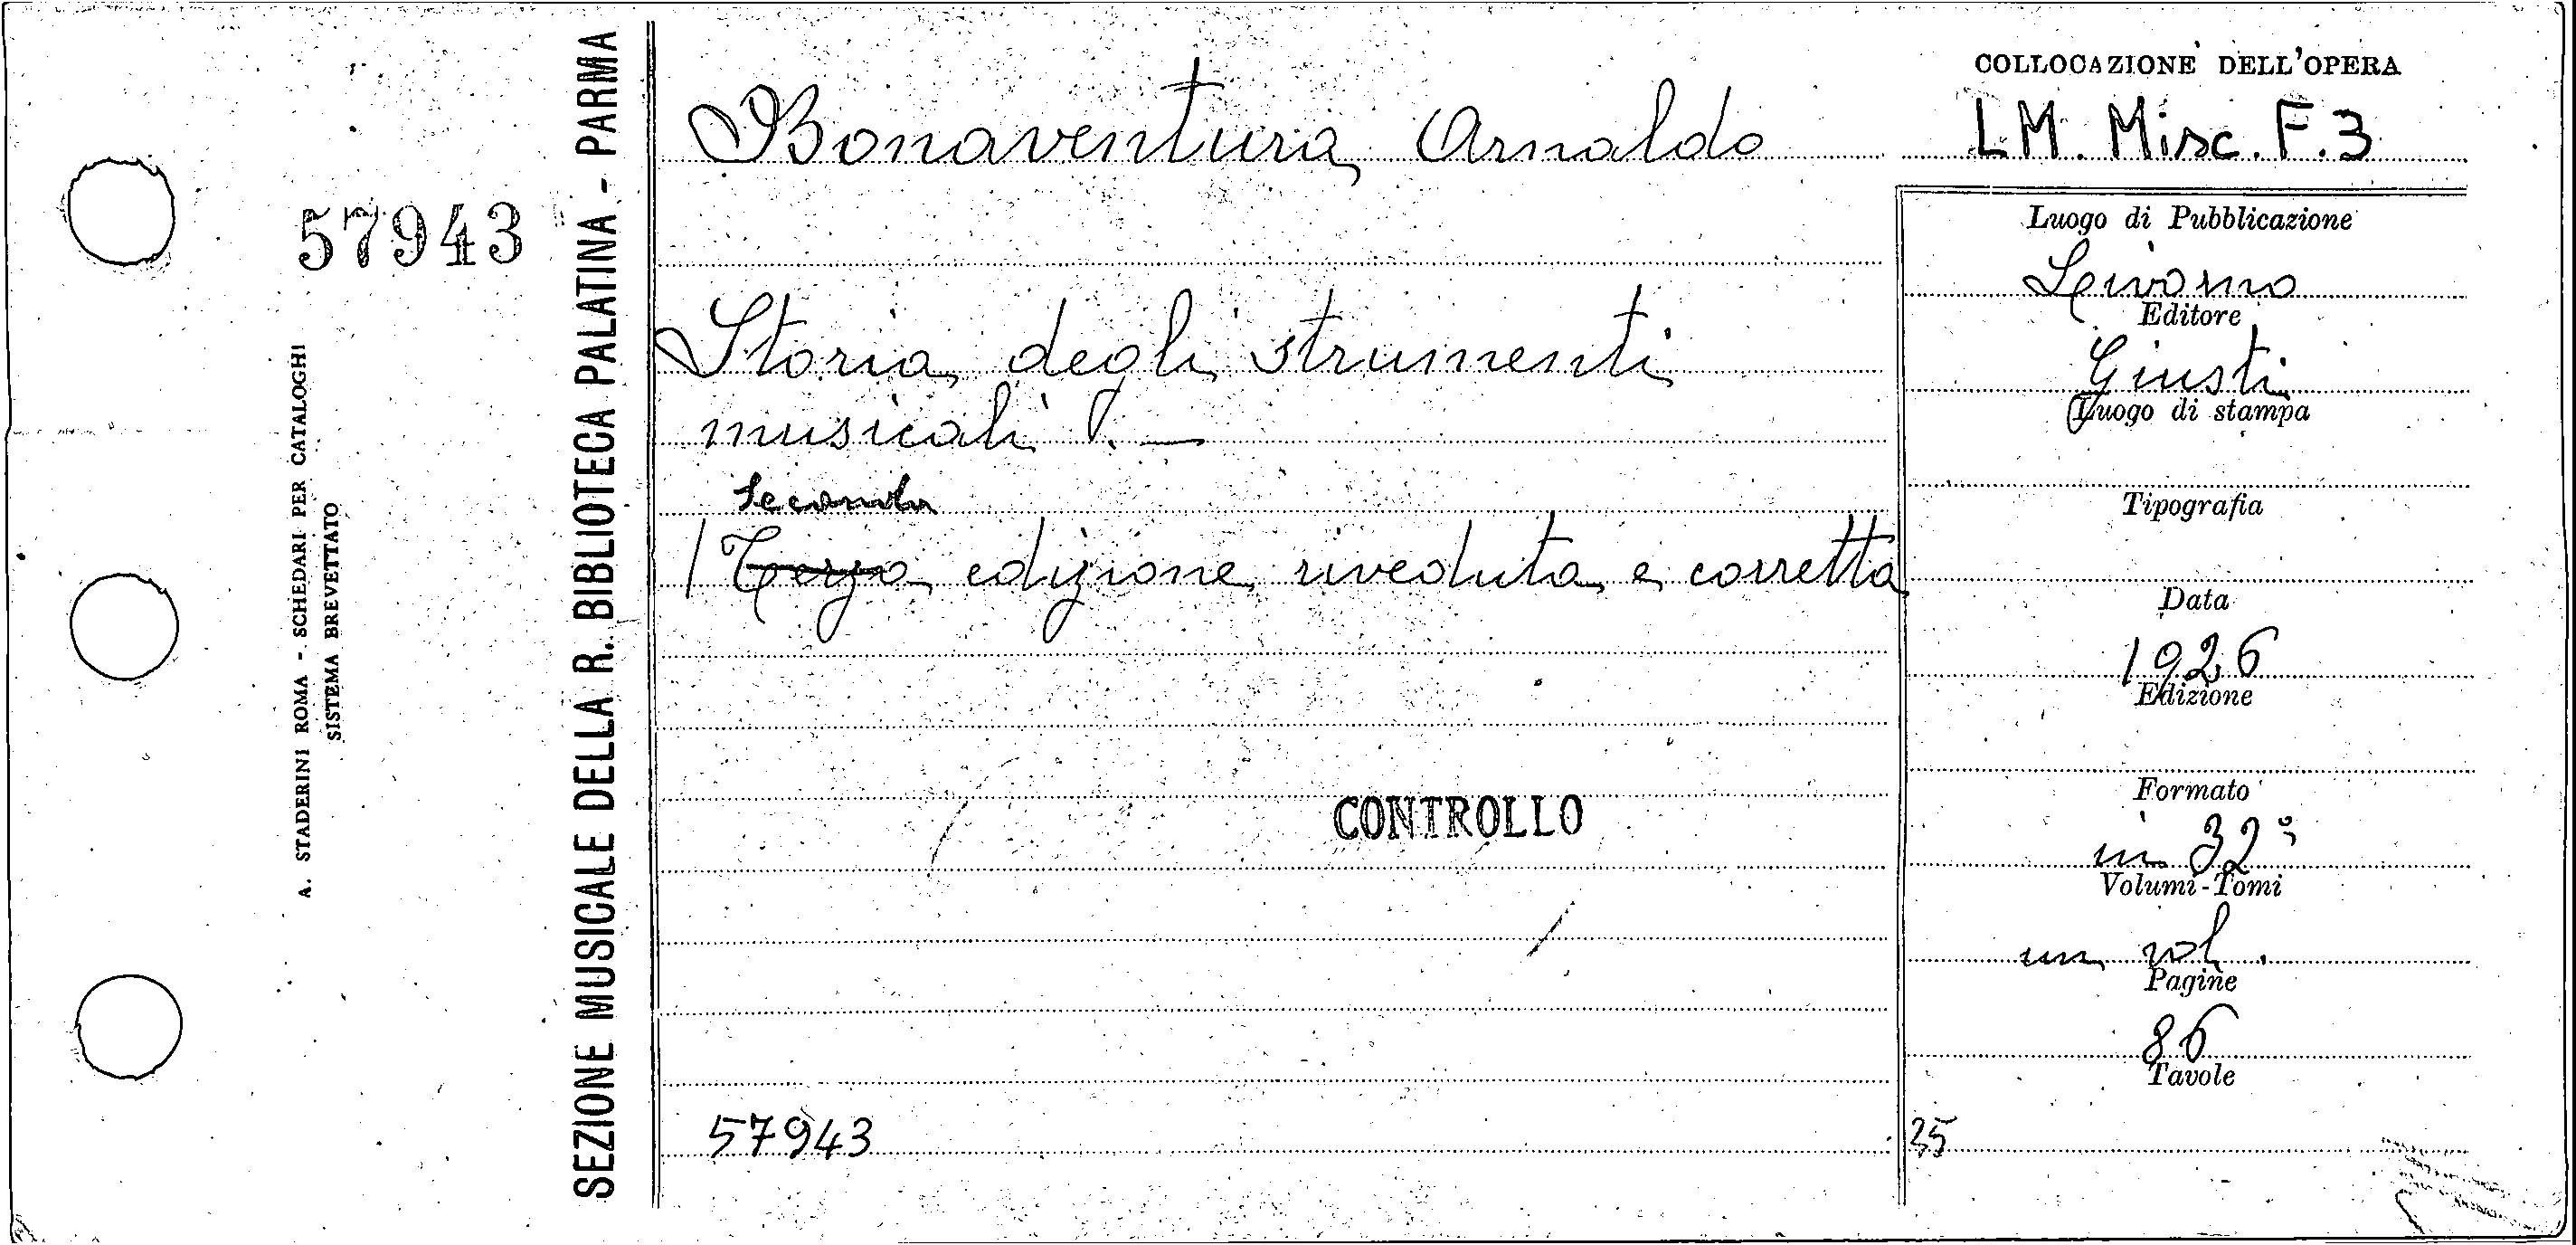 57943
A. STADERINI ROMA - SCHEDARI PER CATALOGHI
SISTEMA BREVETTATO
SEZIONE MUSICALE DELLA R. BIBLIOTECA PALATINA - PARMA
Bonaventura Arnaldo
Storia degli strumenti
musicali
Seconda
/ Terza edizione riveduta e corretta
CONTROLLO
57943
COLLOCAZIONE DELL'OPERA
LM. Misc. F. 3
Luogo di Pubblicazione
Livorno
Editore
Giusti
Luogo di stampa
Tipografia
Data
1926
Edizione
Formato
in 32º
Volumi-Tomi
un vol.
Pagine
86
Tavole
35